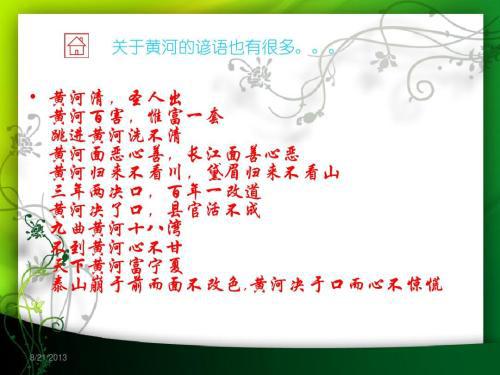 关于黄河的谚语也有很多。。。
• 黄河清，圣人出
黄河百害，惟富一套
跳进黄河洗不清
黄河面恶心善，长江面善心恶
黄河归来不看川，黛眉归来不看山
三年两决口，百年一改道
黄河决了口，县官活不成
九曲黄河十八湾
不到黄河心不甘
天下黄河富宁夏
泰山崩于前而面不改色.黄河决于口而心不惊慌
8/21/2013